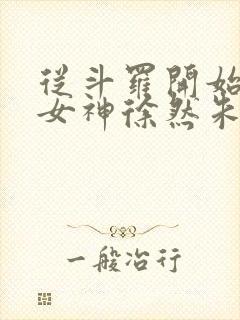 從斗羅開始
女神徐然朱
一般冶行